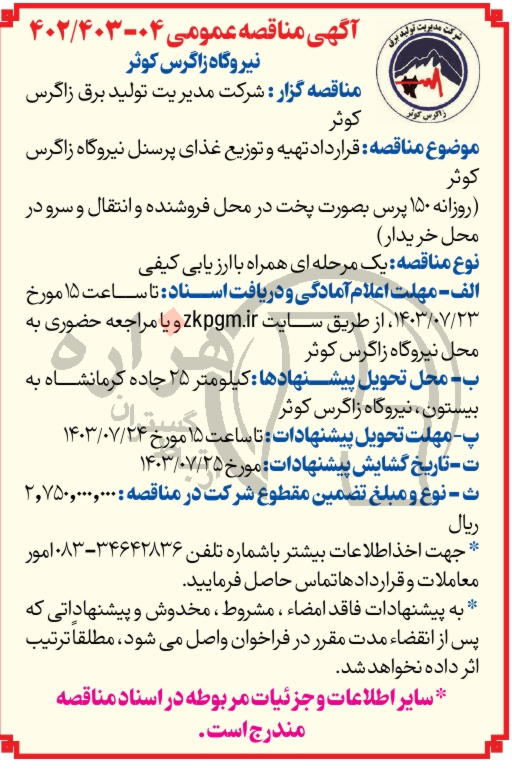 آگهی مناقصه عمومی ۰۴-۴۰۲/۴۰۳
نیروگاه زاگرس کوثر
شرکت مدیریت تولید برق
زاگرس کوثر
مناقصه گزار : شرکت مدیریت تولید برق زاگرس
کوثر
موضوع مناقصه : قرارداد تهیه و توزیع غذای پرسنل نیروگاه زاگرس
کوثر
(روزانه ۱۵۰ پرس بصورت پخت در محل فروشنده و انتقال و سرو در
محل خریدار)
نوع مناقصه : یک مرحله ای همراه با ارزیابی کیفی
الف - مهلت اعلام آمادگی و دریافت اسناد : تا ساعت ۱۵ مورخ
۱۴۰۳/۰۷/۲۳، از طریق سایت zkpgm.ir و یا مراجعه حضوری به
محل نیروگاه زاگرس کوثر
ب - محل تحویل پیشنهادها : کیلومتر ۲۵ جاده کرمانشاه به
بیستون ، نیروگاه زاگرس کوثر
پ - مهلت تحویل پیشنهادات : تا ساعت ۱۵ مورخ ۱۴۰۳/۰۷/۲۴
ت - تاریخ گشایش پیشنهادات : مورخ ۱۴۰۳/۰۷/۲۵
ث - نوع و مبلغ تضمین مقطوع شرکت در مناقصه : ۲,۷۵۰,۰۰۰,۰۰۰
ریال
* جهت اخذ اطلاعات بیشتر با شماره تلفن ۳۴۶۴۲۸۳۶-۰۸۳ امور
معاملات و قراردادها تماس حاصل فرمایید.
* به پیشنهادات فاقد امضاء ، مشروط ، مخدوش و پیشنهاداتی که
پس از انقضاء مدت مقرر در فراخوان واصل می شود، مطلقاً ترتیب
اثر داده نخواهد شد.
*سایر اطلاعات و جزئیات مربوطه در اسناد مناقصه
مندرج است .
هزاره